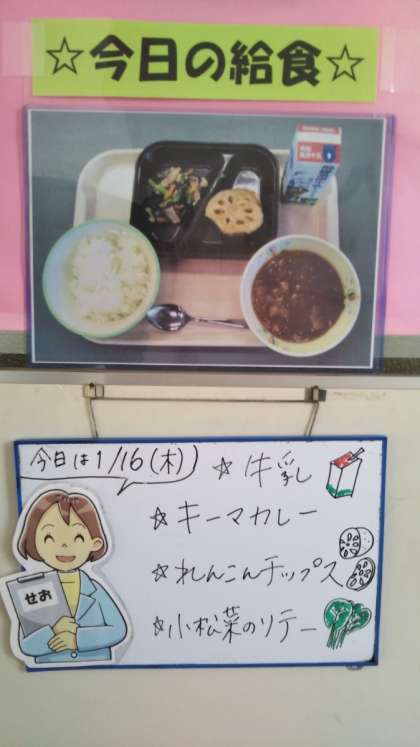 ☆今日の給食☆
今日は1/16(木)
☆牛乳
☆キーマカレー
☆れんこんチップス
☆小松菜のソテー
せお